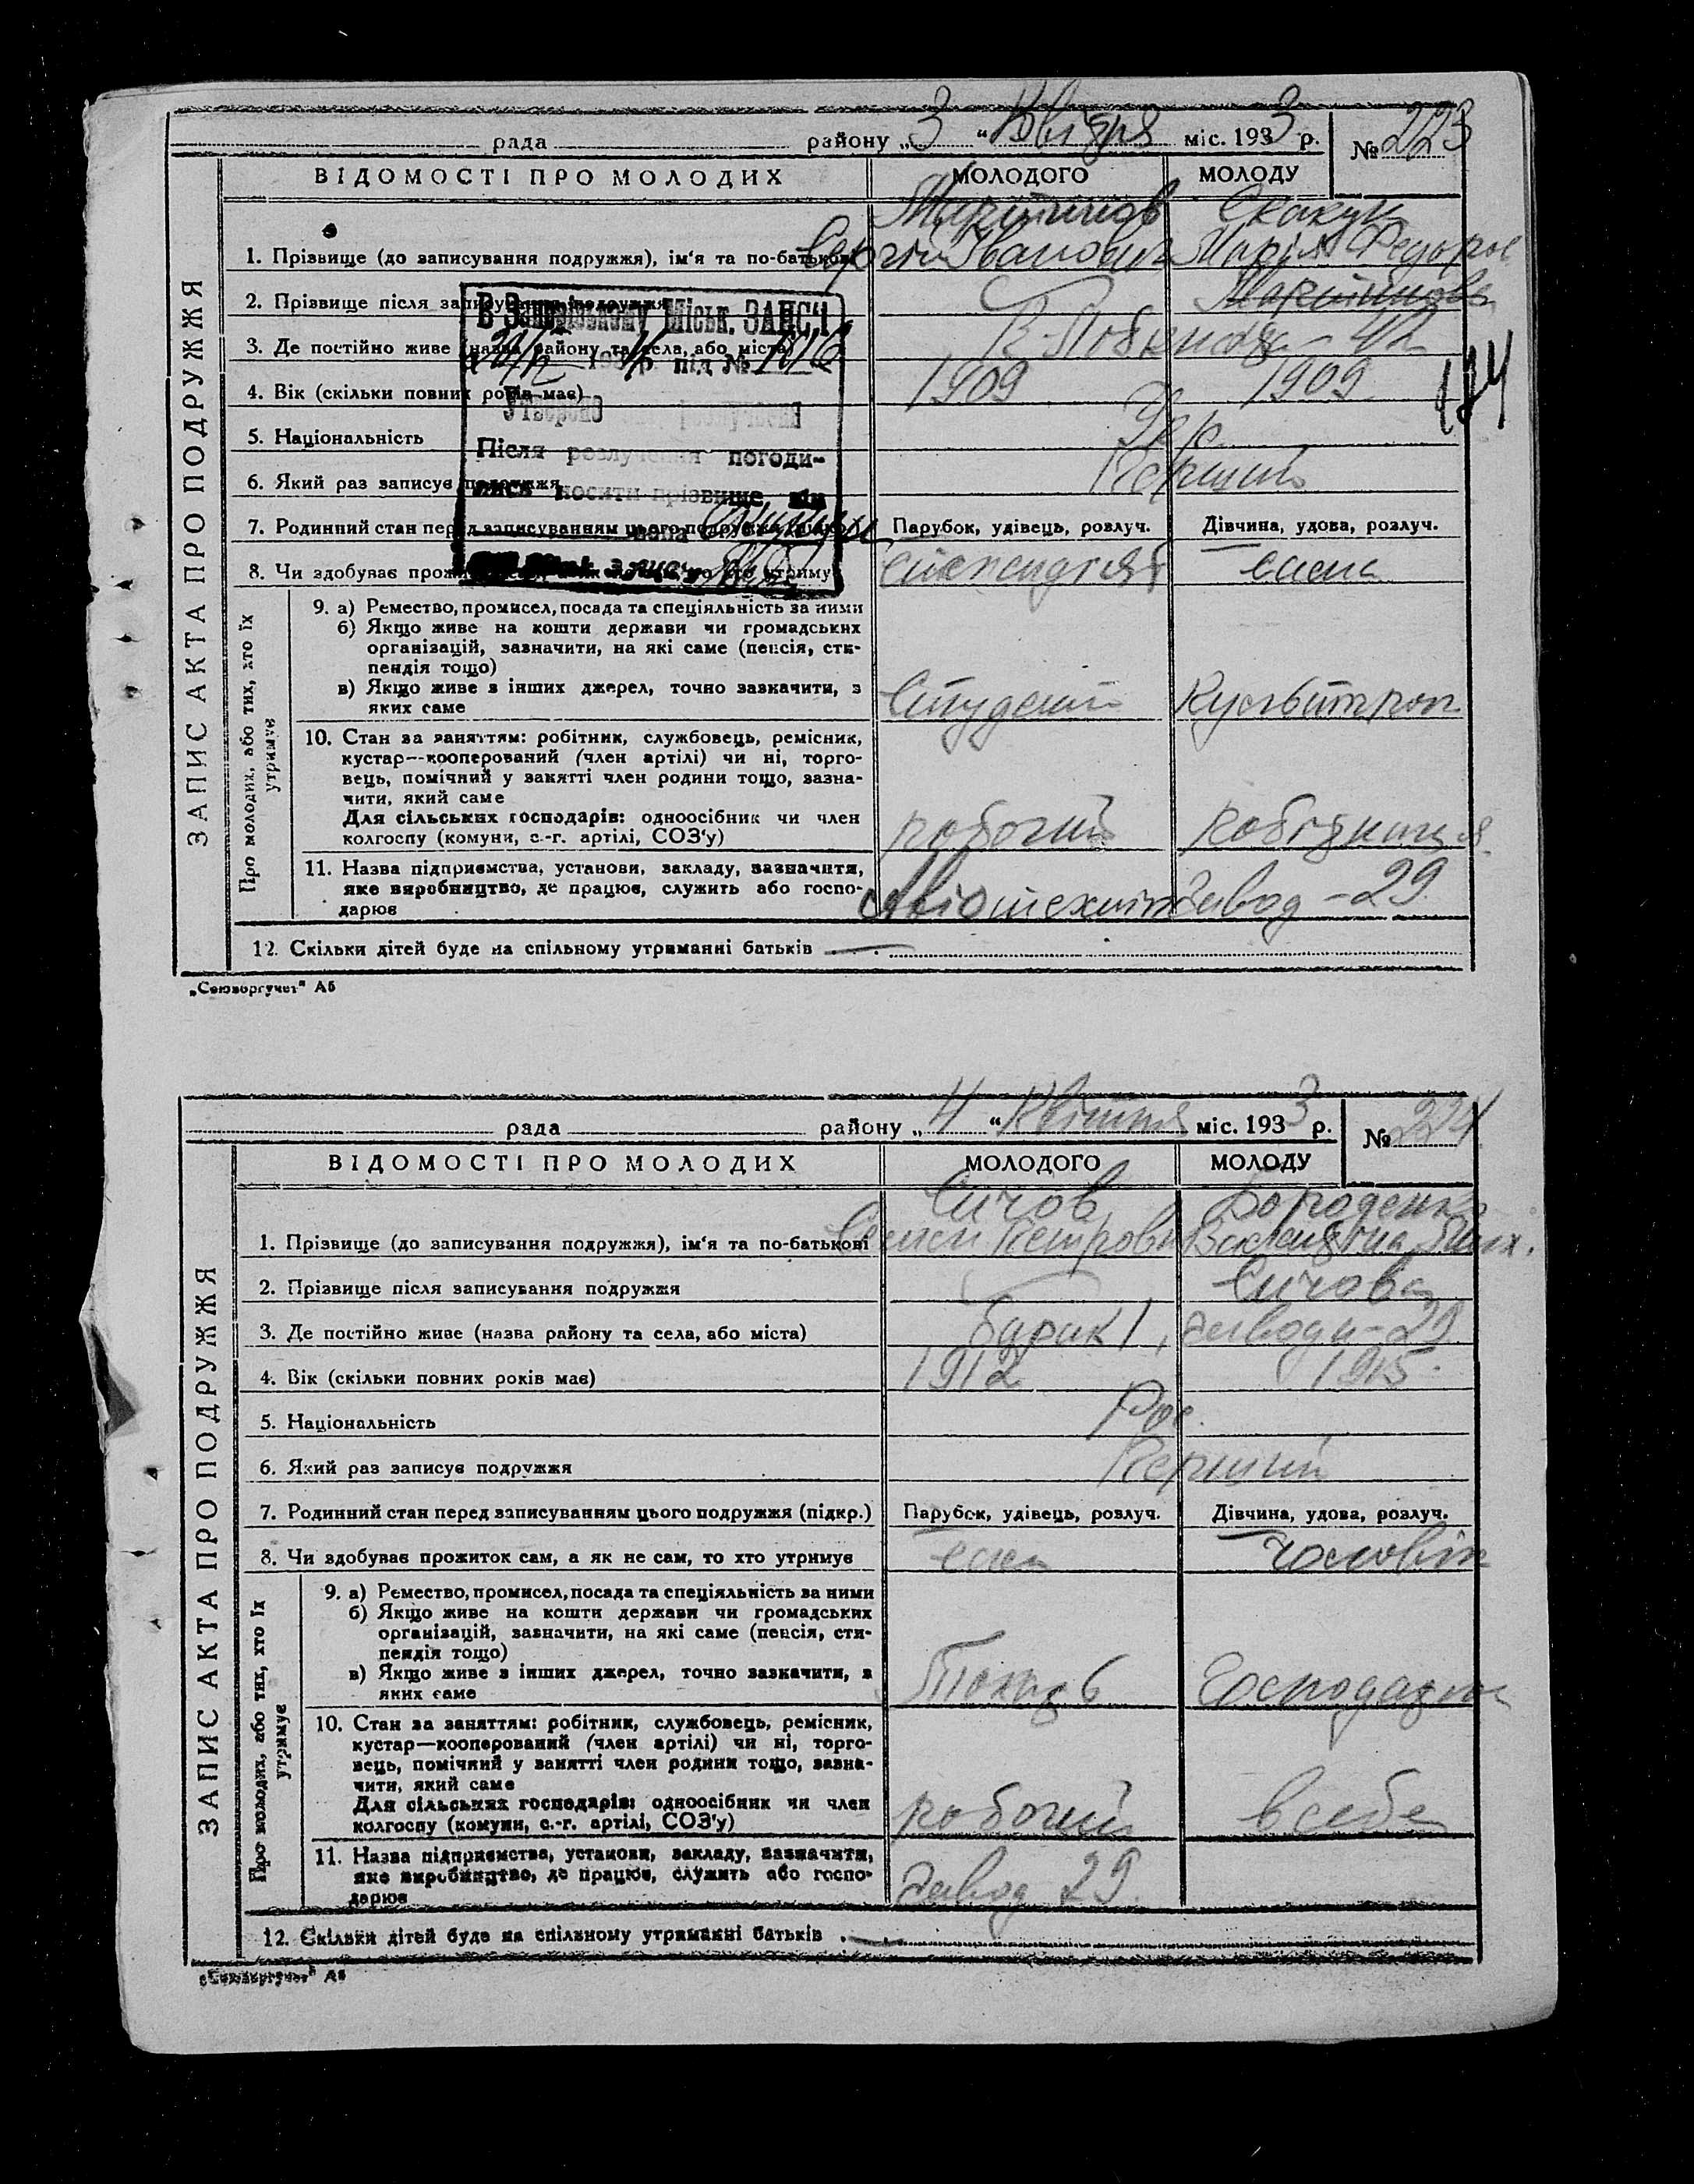 рада району „3“ міс. 1933 р. № 223
ВІДОМОСТІ ПРО МОЛОДИХ МОЛОДОГО МОЛОДУ
ЗАПИС АКТА ПРО ПОДРУЖЖЯ
Мартинов Скакун
1. Прізвище (до записування подружжя), ім'я та по-батькові Сергій Іванович Марія Федоров
2. Прізвище після записування подружжя Мартинова
3. Де постійно живе (назва району та села, або міста)
4. Вік (скільки повних років має) 1909 1909
5. Національність Укр.
6. Який раз записує подружжя Перший
7. Родинний стан перед записуванням цього подружжя (підкр.) Парубок, удівець, розлуч. Дівчина, удова, розлуч.
8. Чи здобуває прожиток сам, а як не сам, то хто утримує стипендія сама
Про молодих, або тих, хто їх утримує
9. а) Ремество, промисел, посада та спеціяльність за ними
б) Якщо живе на кошти держави чи громадських
організацій, зазначити, на які саме (пенсія, сти-
пендія тощо)
в) Якщо живе з інших джерел, точно зазначити, з
яких саме Студент Культпроп
10. Стан за заняттям: робітник, службовець, ремісник,
кустар—кооперований (член артілі) чи ні, торго-
вець, помічний у занятті член родини тощо, зазна-
чити, який саме
Для сільських господарів: одноосібник чи член
колгоспу (комуни, с.-г. артілі, СОЗ'у) робочий робітниця
11. Назва підприємства, установи, закладу, зазначити,
яке виробництво, де працює, служить або госпо-
дарює Авіотехнік Завод - 29
12. Скільки дітей буде на спільному утриманні батьків —
„Союзоргучет" А5
В Запорізькому Міськ. ЗАГС'І
193 р. під №
Утворено
Після розлучення погоди-
лись носити прізвище він
вона
174
рада району „4“ Квітня міс. 1933 р. № 224
ВІДОМОСТІ ПРО МОЛОДИХ МОЛОДОГО МОЛОДУ
ЗАПИС АКТА ПРО ПОДРУЖЖЯ
Сичов Бороденко
1. Прізвище (до записування подружжя), ім'я та по-батькові Семен Петрович Валентина
2. Прізвище після записування подружжя Сичова
3. Де постійно живе (назва району та села, або міста) барак 1, заводу - 29
4. Вік (скільки повних років має) 1912 1915
5. Національність Рос.
6. Який раз записує подружжя Перший
7. Родинний стан перед записуванням цього подружжя (підкр.) Парубок, удівець, розлуч. Дівчина, удова, розлуч.
8. Чи здобуває прожиток сам, а як не сам, то хто утримує сам чоловік
Про молодих, або тих, хто їх утримує
9. а) Ремество, промисел, посада та спеціяльність за ними
б) Якщо живе на кошти держави чи громадських
організацій, зазначити, на які саме (пенсія, сти-
пендія тощо)
в) Якщо живе з інших джерел, точно зазначити, з
яких саме Токар 6
10. Стан за заняттям: робітник, службовець, ремісник,
кустар—кооперований (член артілі) чи ні, торго-
вець, помічний у занятті член родини тощо, зазна-
чити, який саме
Для сільських господарів: одноосібник чи член
колгоспу (комуни, с.-г. артілі, СОЗ'у) робочий в себе
11. Назва підприємства, установи, закладу, зазначити,
яке виробництво, де працює, служить або госпо-
дарює Завод 29
12. Скільки дітей буде на спільному утриманні батьків —
„Союзоргучет" А5